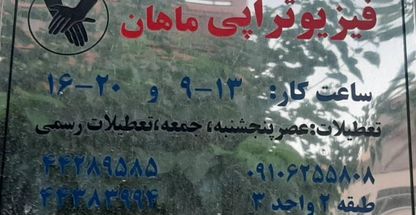 فیزیوتراپی ماهان
ساعت کار: ۱۳-۹ و ۲۰-۱۶
تعطیلات:عصرپنجشنبه، جمعه،تعطیلات رسمی
۰۹۱۰۶۲۵۵۸۰۸ ۴۴۲۸۹۵۸۵
طبقه ۲ واحد ۳ ۴۴۳۸۳۹۹۴